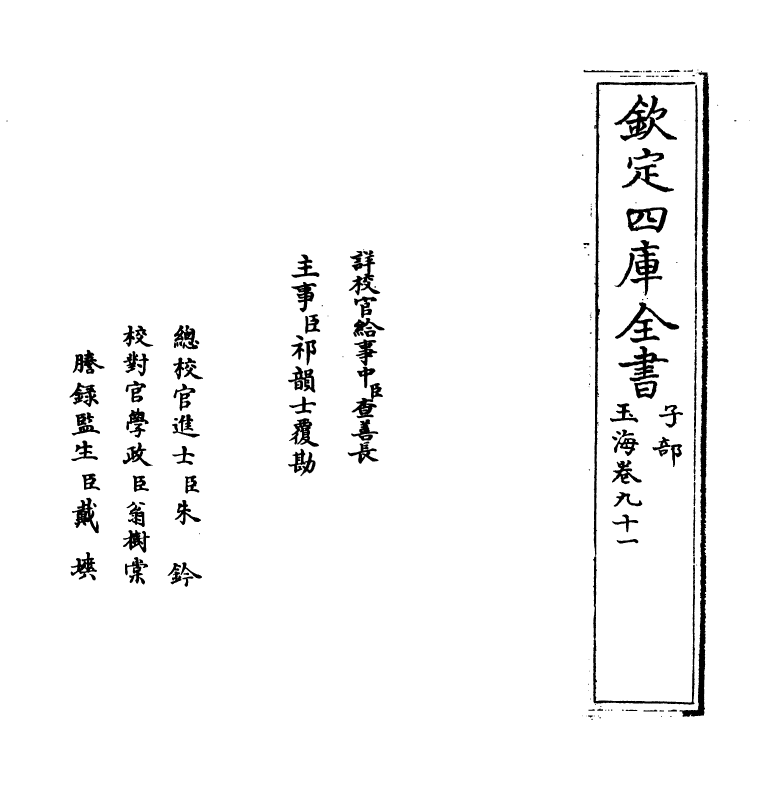 欽定四庫全書
子部
玉海卷九十一
詳校官給事中臣查善長
主事臣祁韻士覆勘
總校官進士臣朱鈐
校對官學政臣翁樹棠
謄錄監生臣戴㙪